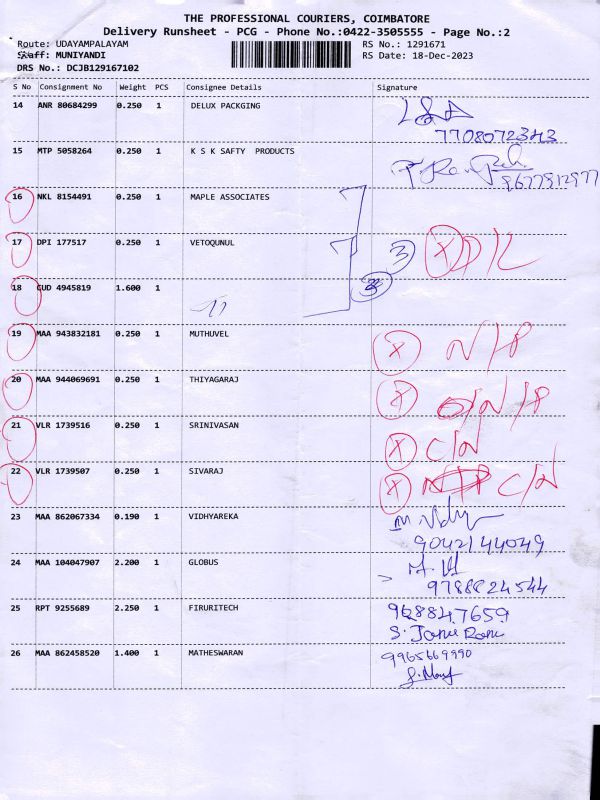 THE PROFESSIONAL COURIERS, COIMBATORE
Delivery Runsheet - PCG - Phone No.:0422-3505555 - Page No.:2
Route: UDAYAMPALAYAM RS No.: 1291671
Staff: MUNIYANDI RS Date: 18-Dec-2023
DRS No.: DCJB129167102
S No Consignment No Weight PCS Consignee Details Signature
14 ANR 80684299 0.250 1 DELUX PACKGING
15 MTP 5058264 0.250 1 K S K SAFTY PRODUCTS
9677912977
16 NKL 8154491 0.250 1 MAPLE ASSOCIATES
17 DPI 177517 0.250 1 VETOQUNUL 3 X D/L
18 GUD 4945819 1.600 1
19 MAA 943832181 0.250 1 MUTHUVEL X N/P
20 MAA 944069691 0.250 1 THIYAGARAJ X
21 VLR 1739516 0.250 1 SRINIVASAN X C/N
22 VLR 1739507 0.250 1 SIVARAJ X C/N
23 MAA 862067334 0.190 1 VIDHYAREKA
9042144049
24 MAA 104047907 2.200 1 GLOBUS
9788824544
25 RPT 9255689 2.250 1 FIRURITECH
26 MAA 862458520 1.400 1 MATHESWARAN 9965669990